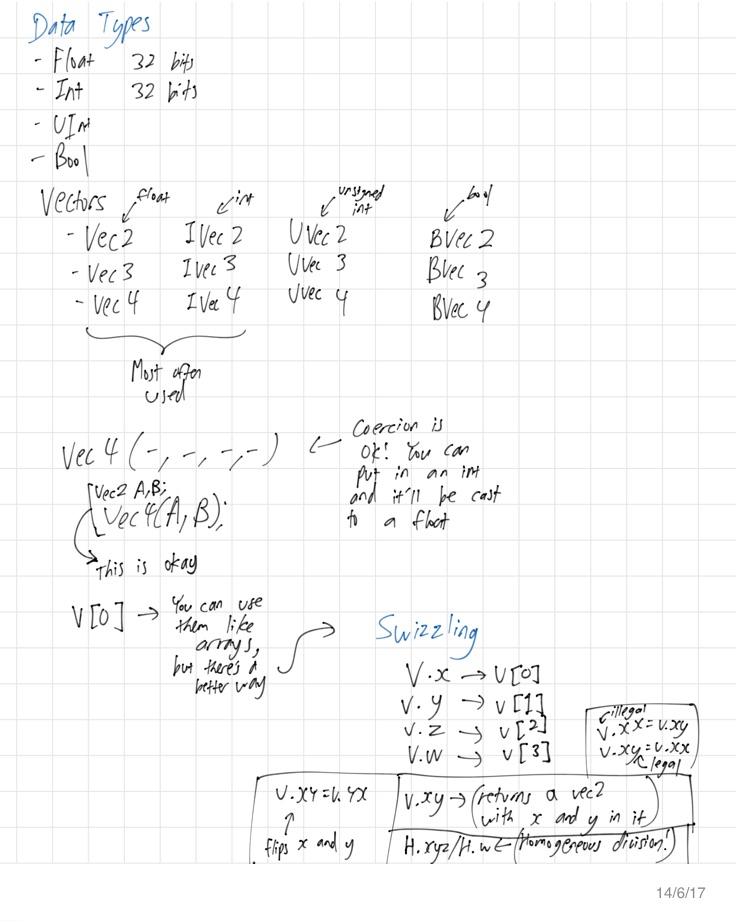 Data Types
- Float 32 bits
- Int 32 bits
- UInt
- Bool
Vectors
float int unsigned int bool
- Vec2 IVec2 UVec2 BVec2
- Vec3 Ivec3 Uvec 3 Bvec 3
- Vec4 IVec4 Uvec 4 BVec 4
Most often
used
Vec4 (-, -, -, -)
Coercion is
ok! You can
put in an int
and it'll be cast
to a float
Vec2 A,B;
Vec4(A, B);
This is okay
V[0] → You can use
them like
arrays,
but there's a
better way
Swizzling
V.x → V[0]
V.y → V[1]
V.z → V[2]
V.w → V[3]
illegal
V.xx = V.xy
V.xy = V.xx
legal
V.XY = V.YX
flips x and y
V.xy → (returns a vec2
with x and y in it)
H.xyz/H.w ← (Homogeneous division!)
14/6/17